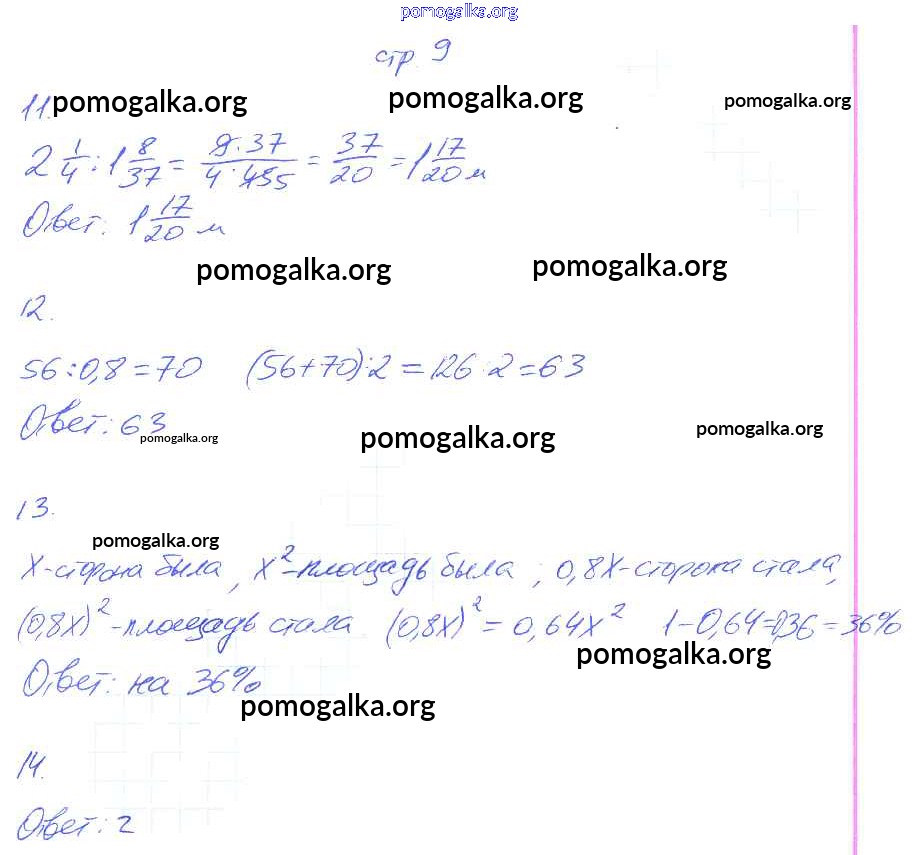 pomogalka.org
стр. 9
11. pomogalka.org pomogalka.org pomogalka.org
2 1/4 : 1 8/37 = 9·37/4·45 5 = 37/20 = 1 17/20 м
Ответ: 1 17/20 м
pomogalka.org pomogalka.org
12.
56:0,8=70 (56+70):2=126:2=63
Ответ: 63
pomogalka.org pomogalka.org pomogalka.org
13.
pomogalka.org
х-сторона была, х²-площадь была; 0,8х-сторона стала,
(0,8х)²-площадь стала (0,8х)² = 0,64х² 1-0,64=0,36=36%
pomogalka.org
Ответ: на 36%
pomogalka.org
14.
Ответ: 2